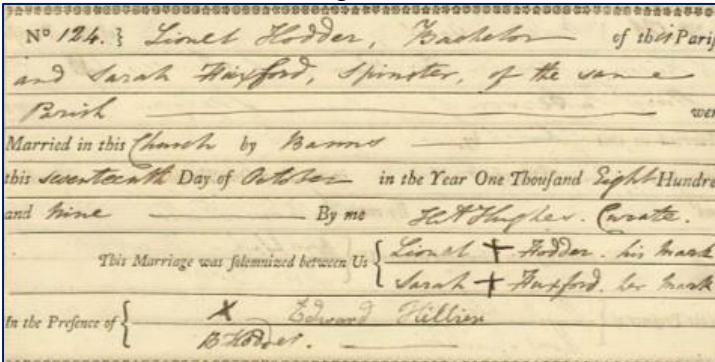 No 124. } Lionel Hodder, Bachelor of this Paris
and Sarah Huxford, Spinster, of the same
Parish wer
Married in this Church by Banns
this seventeenth Day of October in the Year One Thousand Eight Hundre
and Nine By me H A Hughes. Curate.
This Marriage was solemnized between Us { Lionel + Hodder. his Mark
Sarah + Huxford. her Mark
In the Presence of { X Edward Hillier
B Hodder.